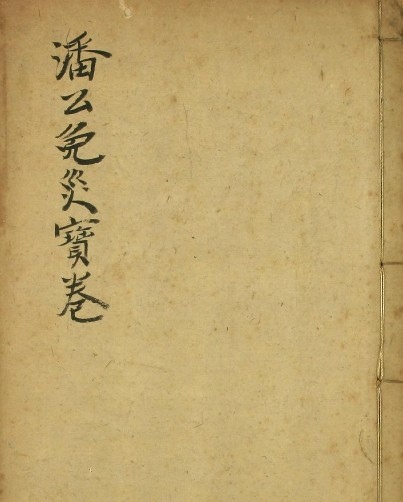 潘公免災寶卷